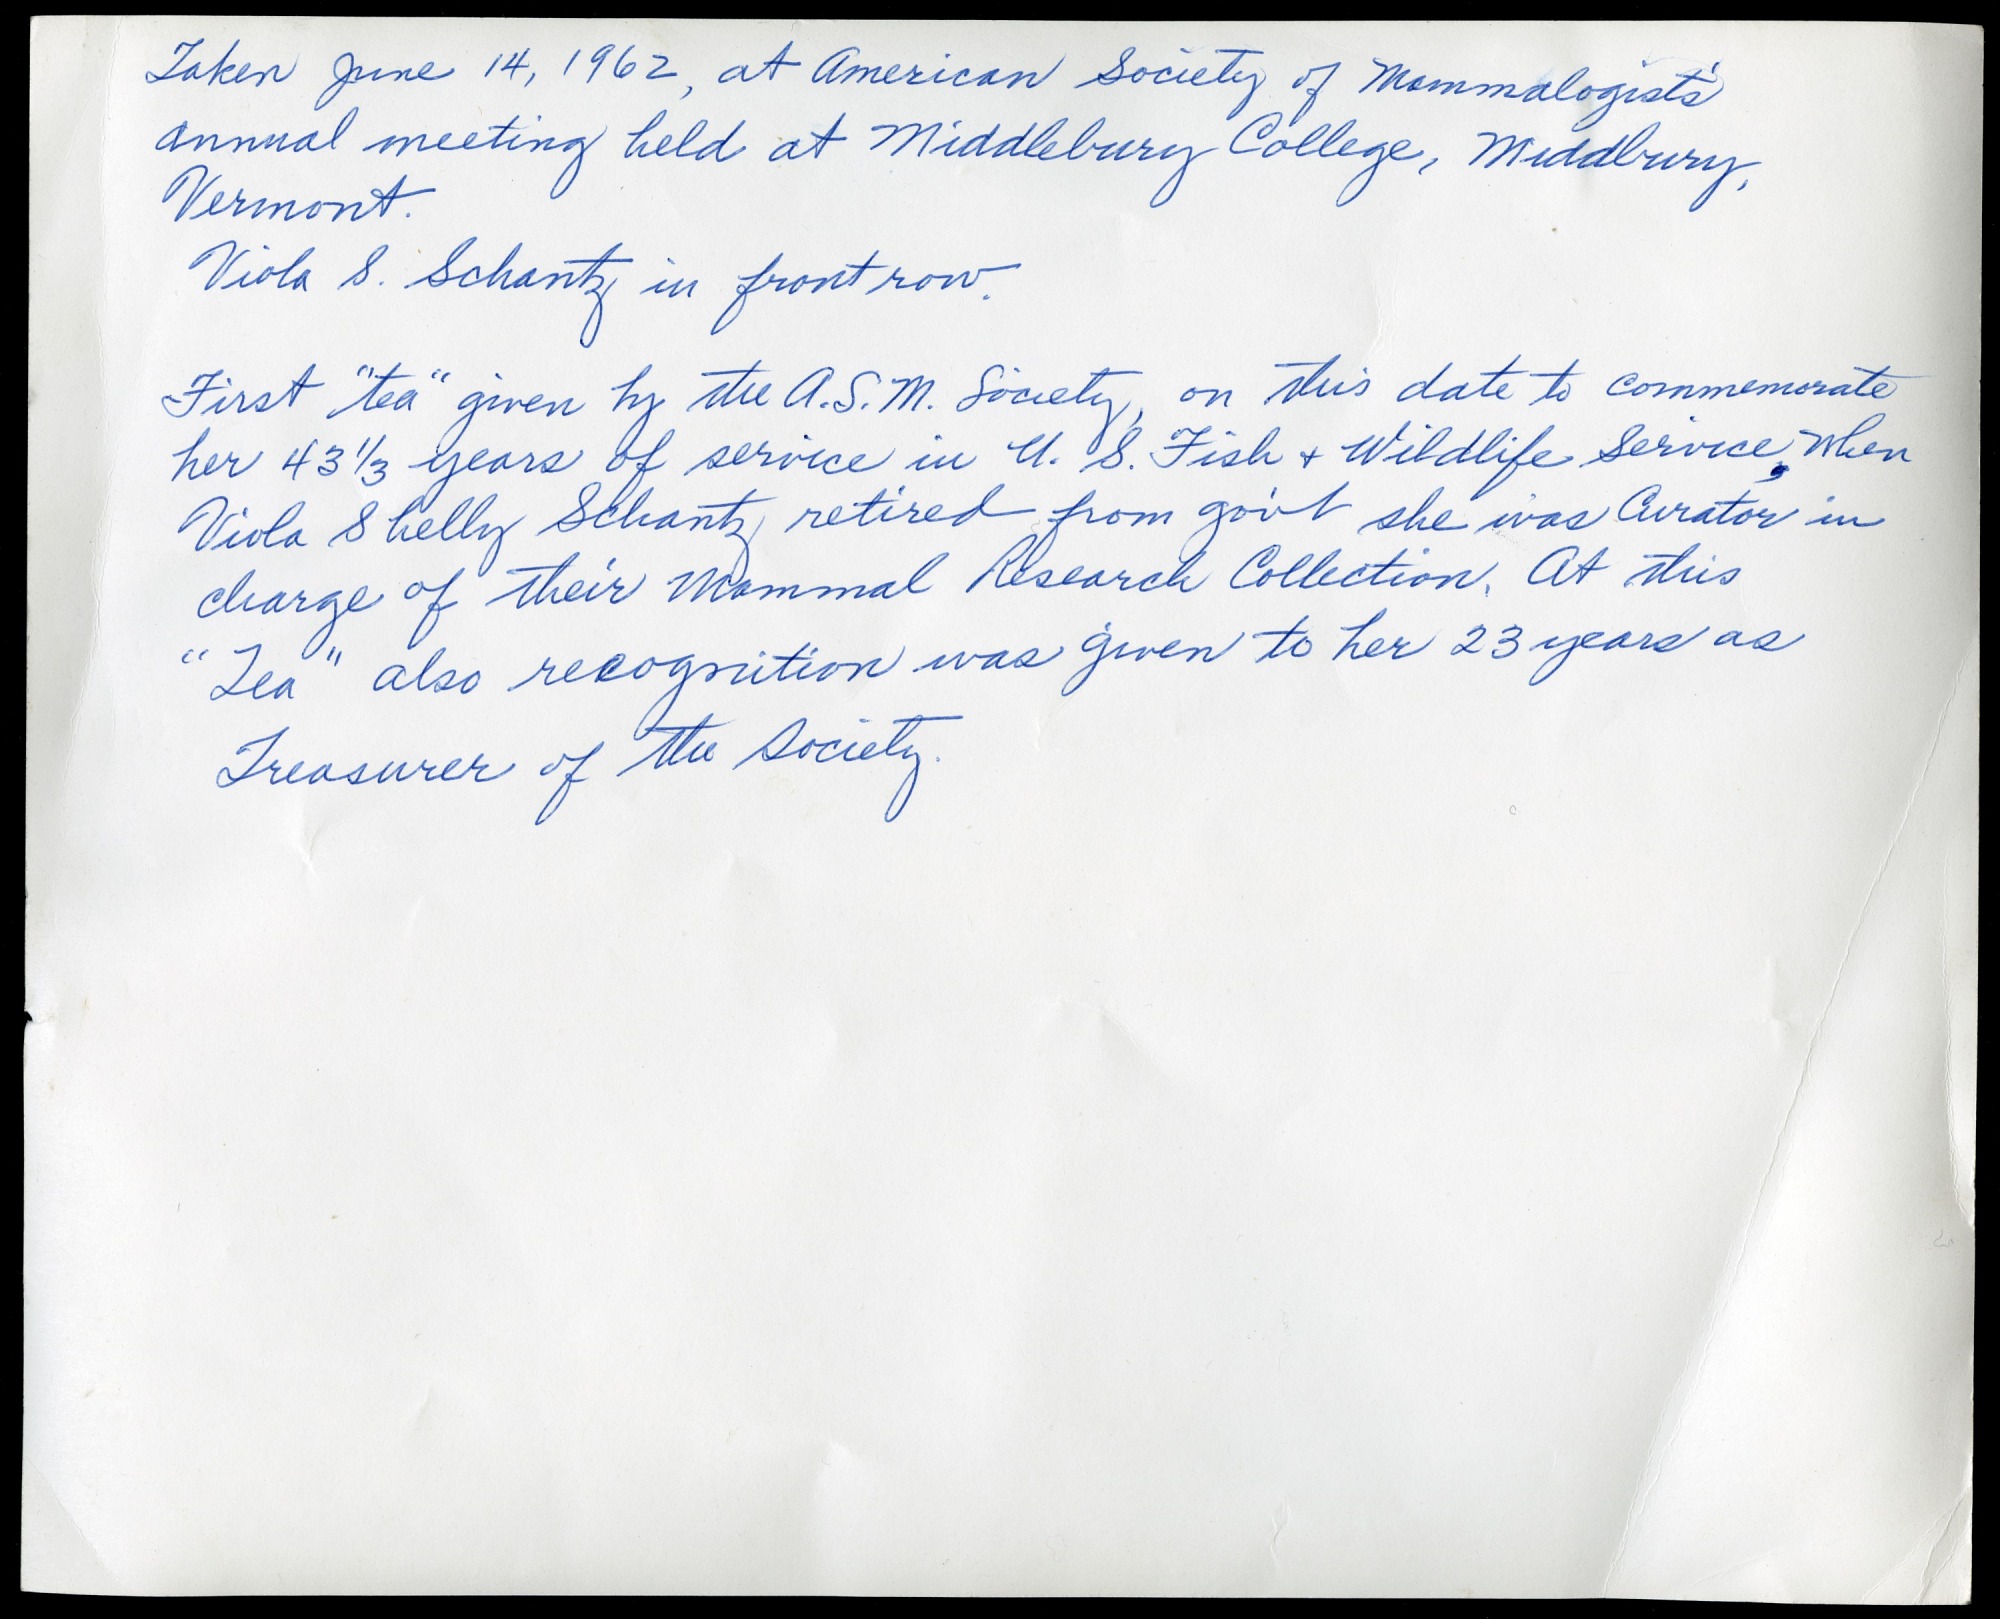 Taken June 14, 1962, at American Society of Mammalogists'
annual meeting held at Middlebury College, Middbury,
Vermont.
Viola S. Schantz in front row.
First "tea" given by the A.S.M. Society, on this date to commemorate
her 43 1/3 years of service in U. S. Fish + Wildlife Service, When
Viola Shelly Schantz retired from gov't she was Curator in
charge of their Mammal Research Collection. At this
"Tea" also recognition was given to her 23 years as
Treasurer of the Society.